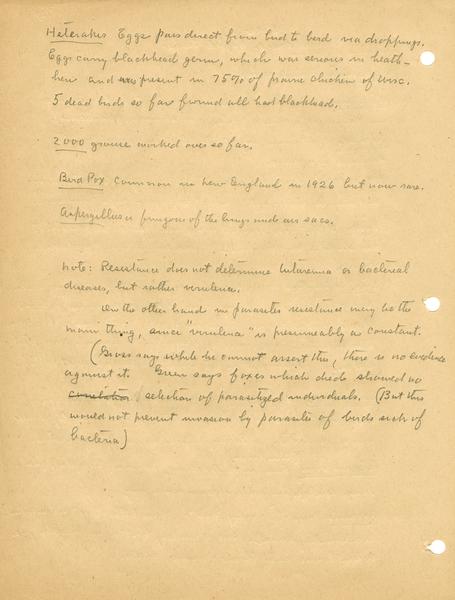 Heterakis Eggs pass direct from bird to bird via droppings.
Eggs carry blackhead germ, which was serious in heath-
hen and present in 75% of prairie chicken of Wisc.
5 dead birds so far found all had blackhead.
2000 grouse worked over so far.
Bird Pox common in New England in 1926 but now rare.
Aspergillus is fungus of the lungs and air sacs.
Note: Resistance does not determine tularemia or bacterial
diseases, but rather virulence.
On the other hand in parasites resistance may be the
main thing, since "virulence" is presumeably a constant.
(Gross says while he cannot assert this, there is no evidence
against it. Green says foxes which died showed no
selection of parasitized individuals. (But this
would not prevent invasion by parasite of birds sick of
bacteria)